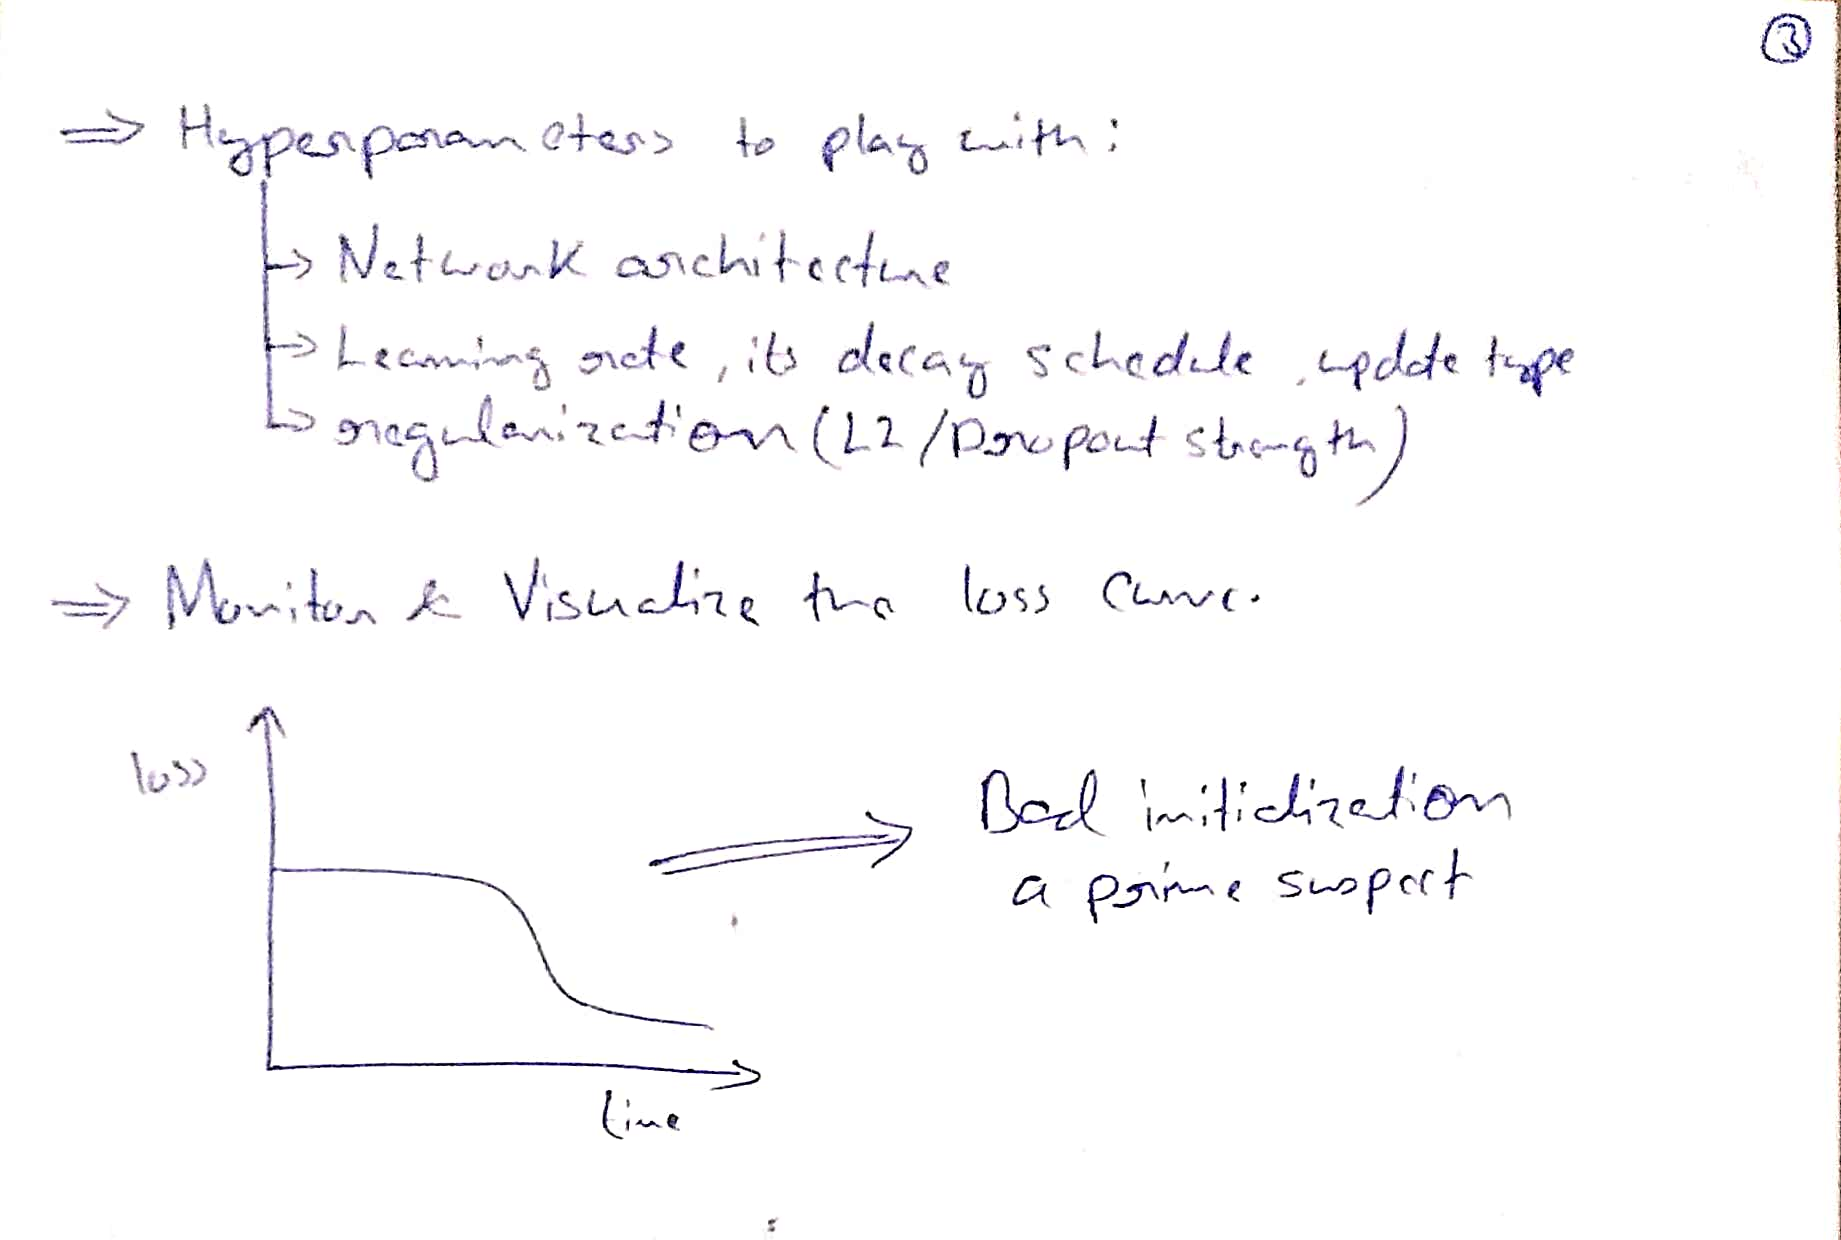 ③
⇒ Hyperparameters to play with:
→ Network architecture
→ Learning rate, its decay schedule, update type
→ regularization (L2/Dropout strength)
⇒ Monitor & Visualize the loss curve.
loss
Bad initialization
a prime suspect
time